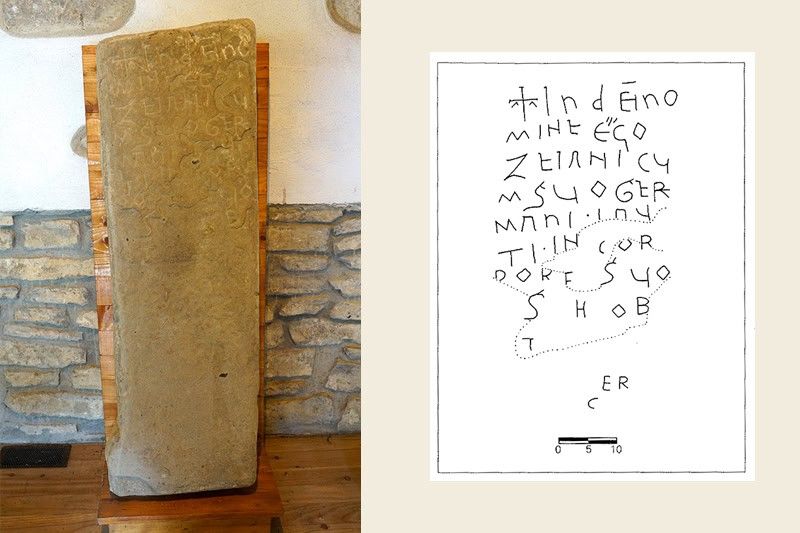 ☩ In d Eī no
MINE EGO
ZEIANICU
M SUO GER
MANI · INU
TI · IN COR
DORE SUO
S H OB
T
ER
C
0 5 10